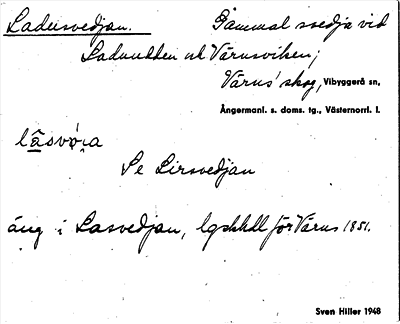 Ladusvedjan. Gammal svedja vid
Ladudden vd Värnsviken;
Värns' skog, Vibyggerå sn,
Ångermanl. s. doms. tg., Västernorrl. l.
Se Lirsvedjan
äng i Lasvedjan, lgskhdl för Värns 1851.
Sven Hiller 1948